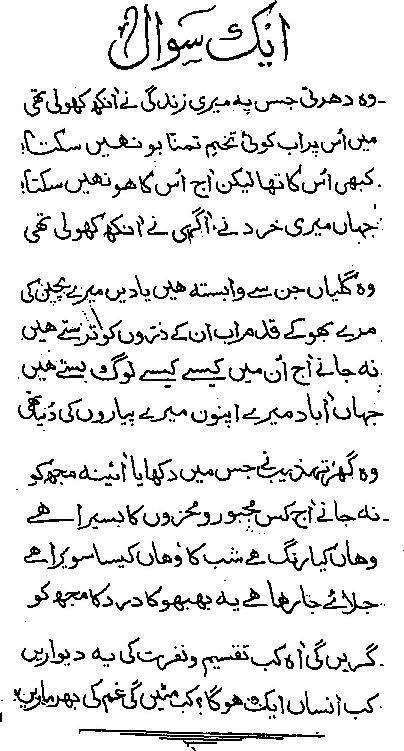 ایک سوال
وہ دھرتی جس پہ میری زندگی نے آنکھ کھولی تھی
میں اُس پر اب کوئی تخمِ تمنا بو نہیں سکتا!
کبھی اُس کا تھا لیکن آج اُس کا ھو نہیں سکتا!
جہاں میری خرد نے، آگہی نے آنکھ کھولی تھی
وہ گلیاں جن سے وابستہ ھیں یادیں میرے بچپن کی
مرے بھوکے قدم اب ان کے ذرّوں کو ترستے ھیں
نہ جانے آج اُن میں کیسے کیسے لوگ بستے ھیں
جہاں آباد میرے اپنوں میرے پیاروں کی دُنیا تھی
وہ گھر، تہذیب نے جس میں دکھایا آئینہ مجھ کو
نہ جانے آج کس مجبور و محزوں کا بسیرا ھے
وھاں کیا رنگ ھے شب کا وھاں کیسا سویرا ھے
جلائے جا رھا ھے یہ بھبھوکا درد کا مجھ کو
گریں گی آہ کب تقسیم و نفرت کی یہ دیواریں
کب انساں ایک ھوگا؟ کب مٹیں گی غم کی بھرماریں